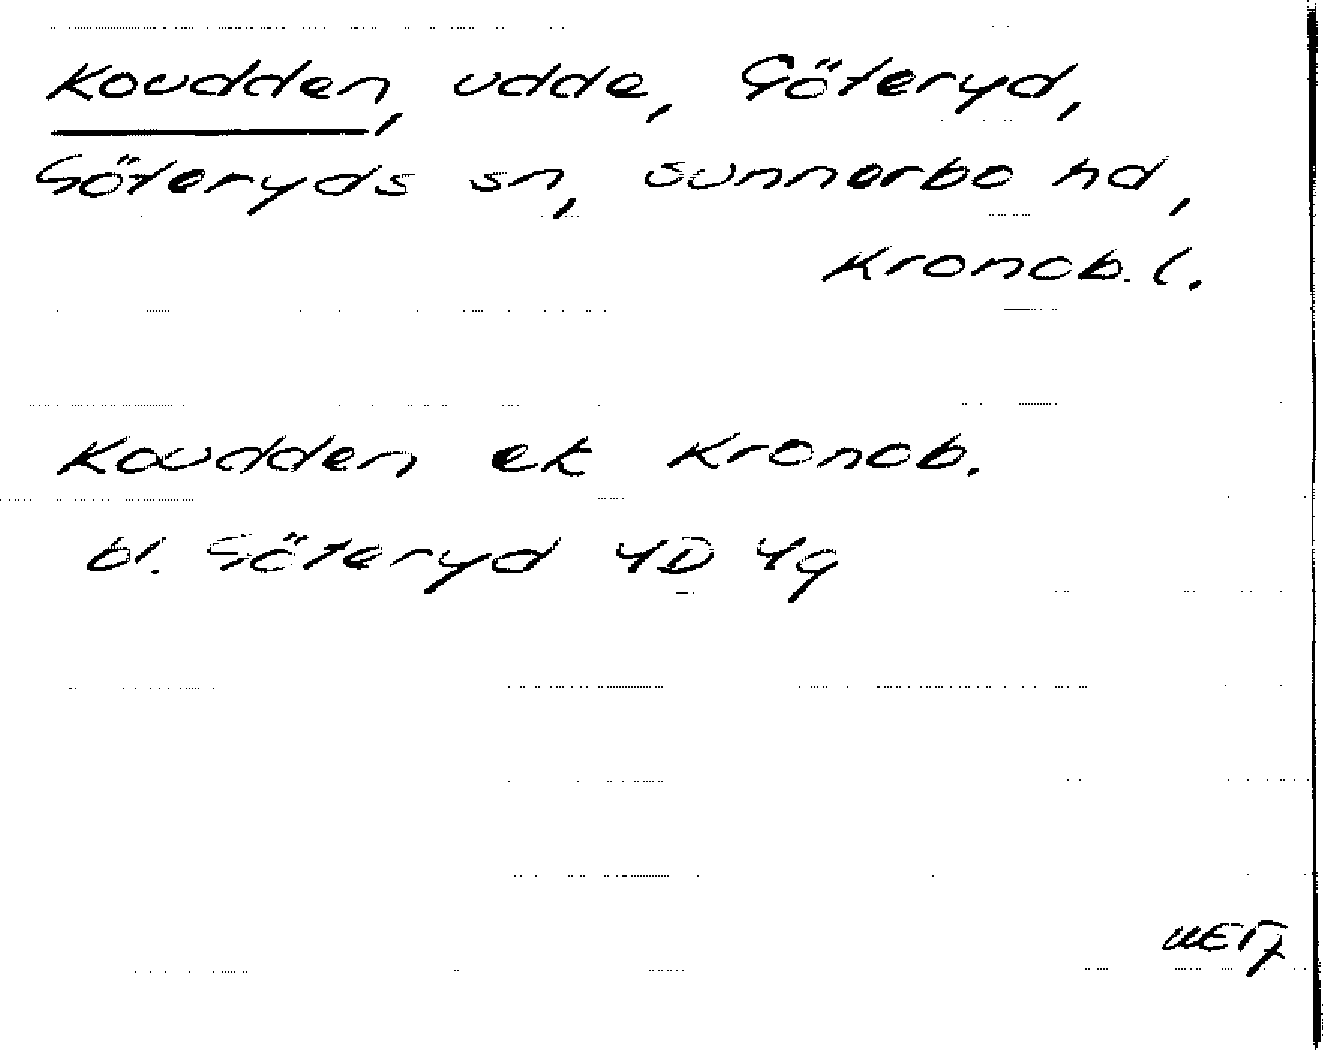 Koudden, udde, Göteryd,
Göteryds sn, Sunnerbo hd,
Kronob. l.
Koudden ek Kronob.
bl. Göteryd 4D 4g